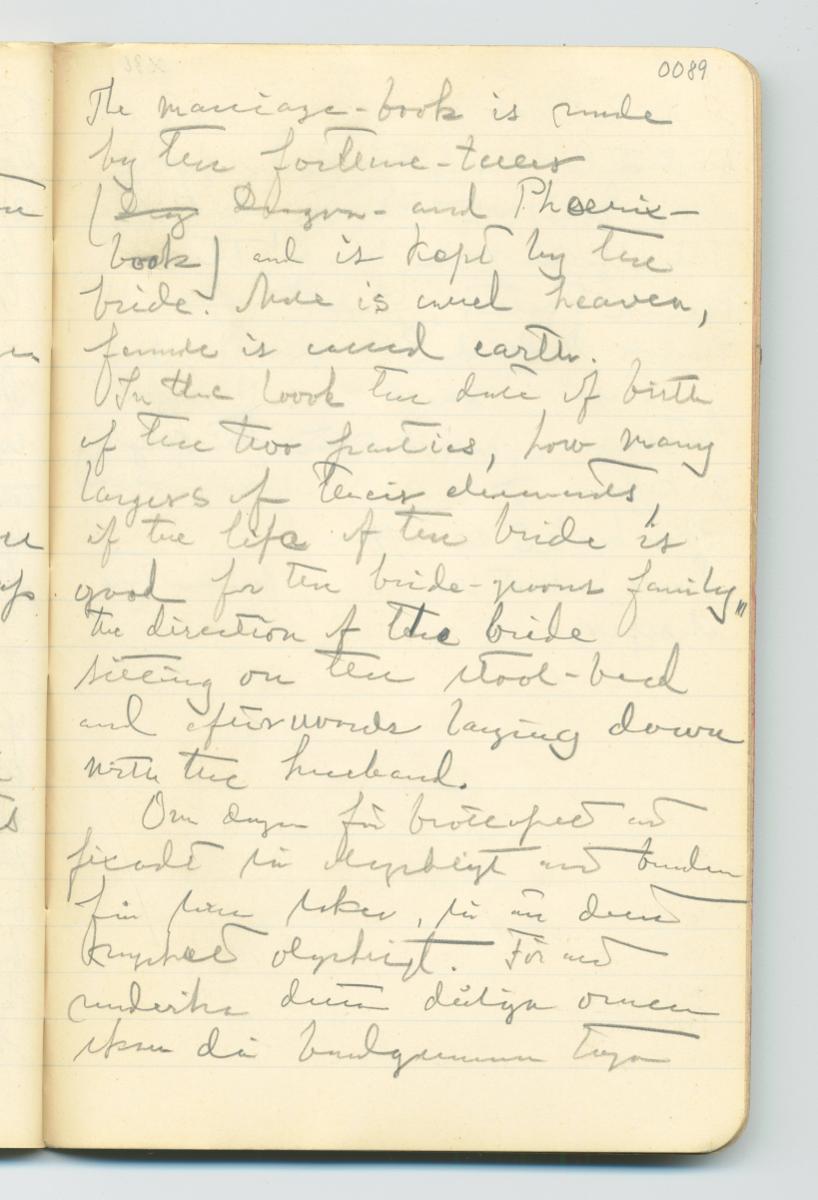 0089
The marriage-book is made
by the fortune-teller
(Drag Dragon- and Phoenix-
book) and is kept by the
bride. Male is heaven,
female is earth.
In the book the date of birth
of the two parties, how many
layers of their elements,
if the life of the bride is
good for the bride-grooms family,
the direction of the bride
sitting on the stool-bed
and afterwards laying down
with the husband.
Om dagen för bröllopet är
är olyckligt och bruden
, är än
olyckligt. För att
undvika detta dåliga omen
skall då brudgummen taga